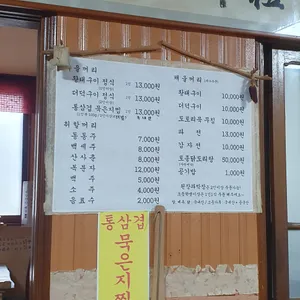 황태구이 정식 13,000원
더덕구이 정식 13,000원
통삼겹 묵은지찜 13,000원
취할꺼리
동동주 7,000원
백세주 8,000원
산사춘 8,000원
복분자 12,000원
맥주 5,000원
소주 4,000원
음료수 2,000원
황태구이 10,000원
더덕구이 10,000원
도토리묵무침 10,000원
파전 10,000원
감자전 10,000원
토종닭도리탕 50,000원
공기밥 1,000원
통삼겹
묵은지찜